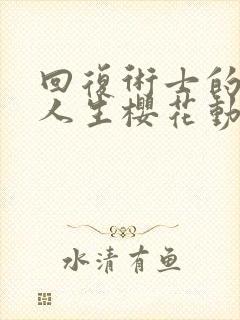 回復術士的
人生櫻花動
水清有鱼